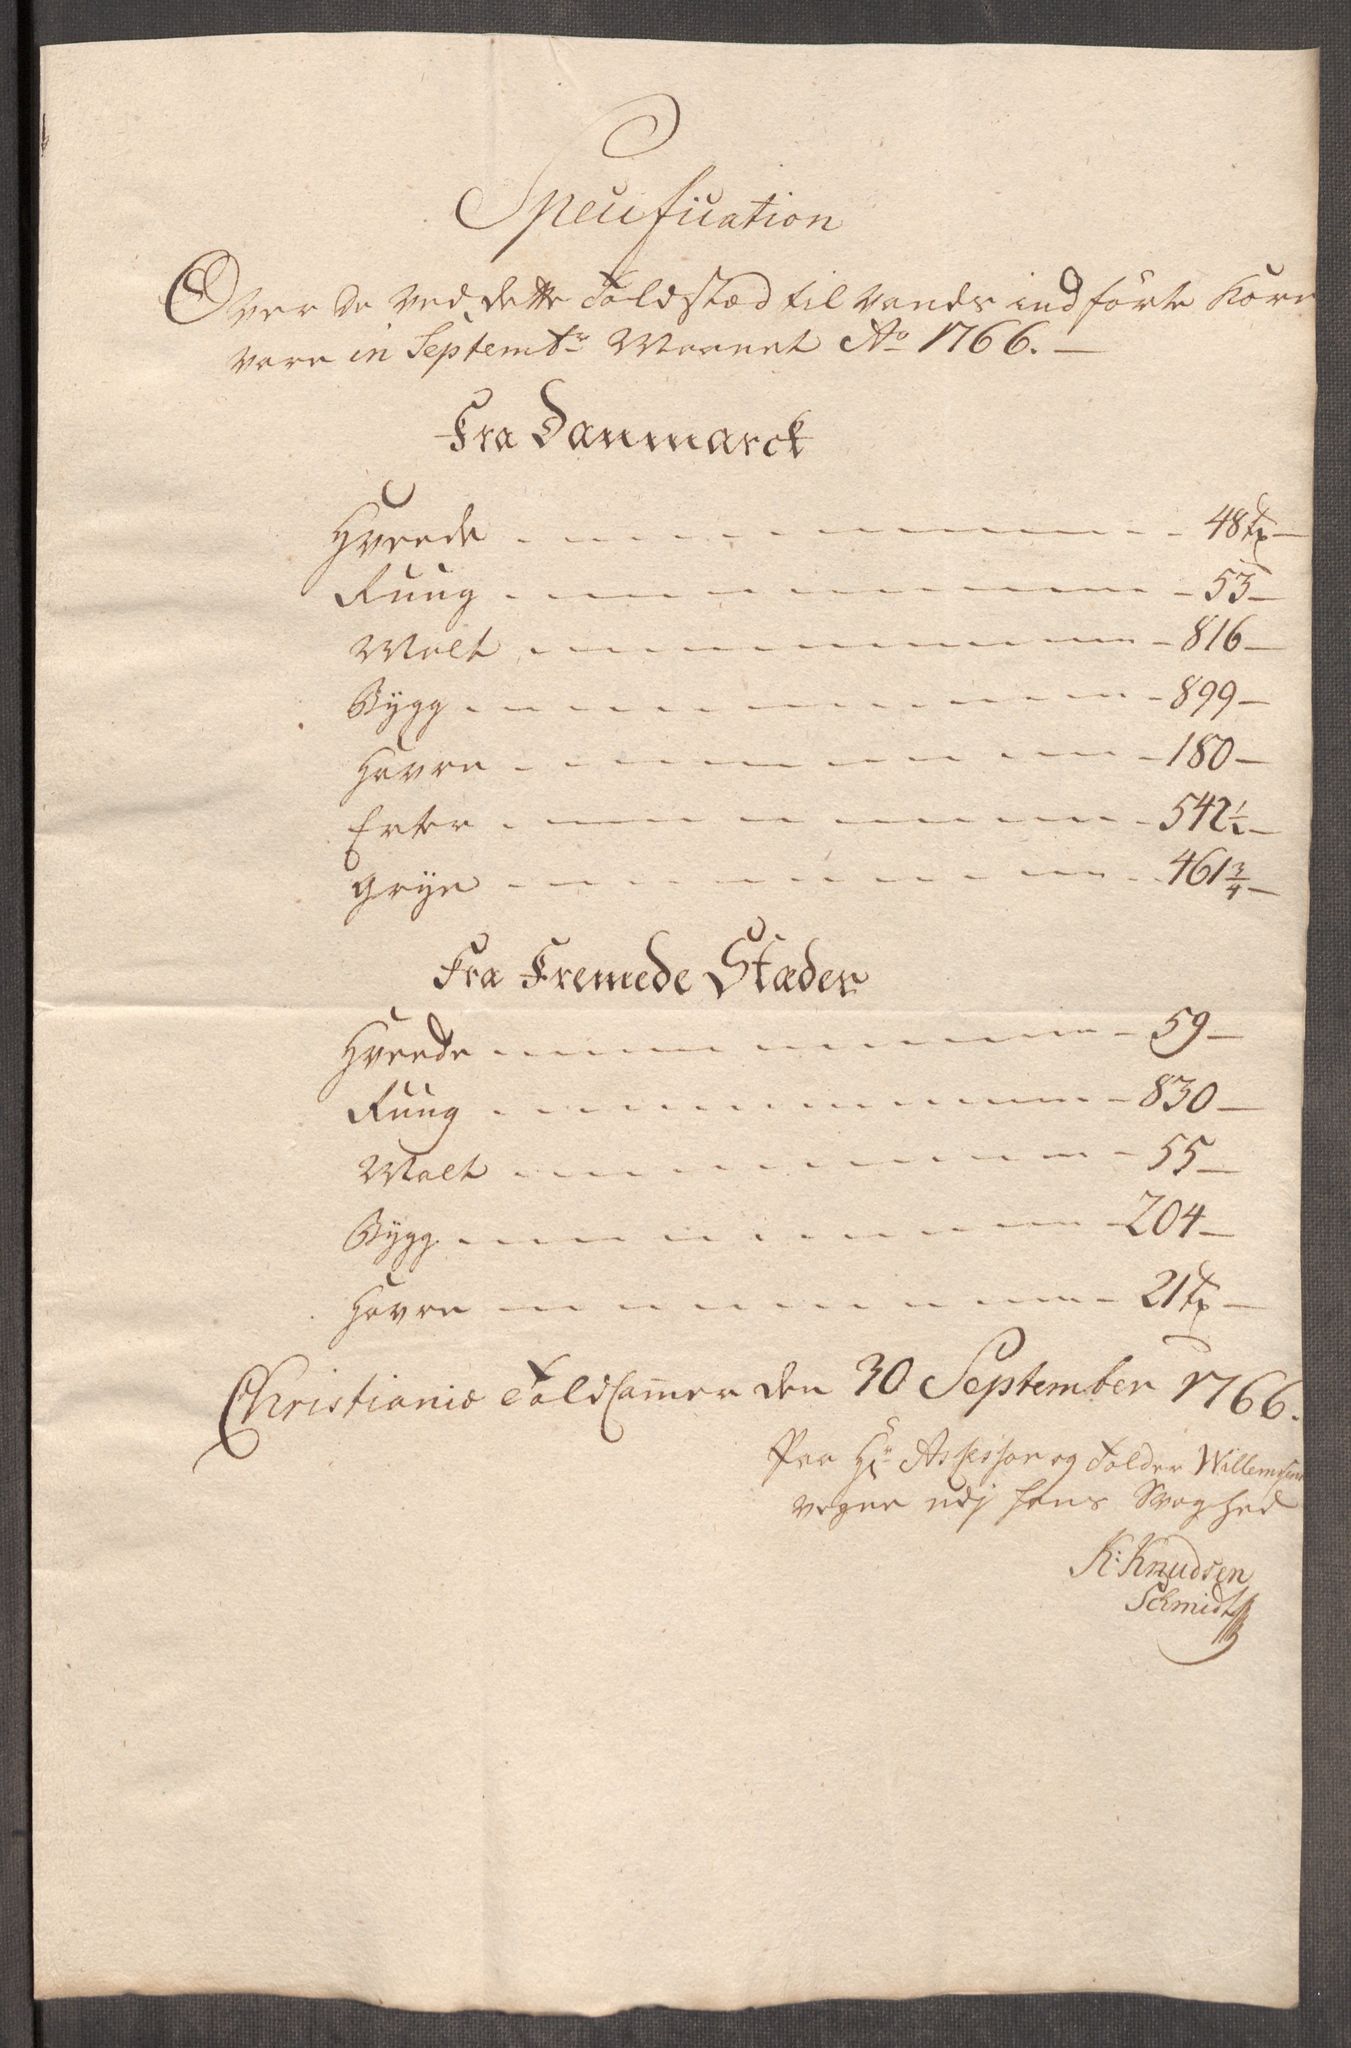 Specification
Over de ved dette Toldstæd til vands indførte Korn
vare in Septembr Maanet Ao 1766. —
Fra Danmarck
Hveede - - - 48 tr —
Ruug - - - 53 —
Malt - - - 816 —
Bygg - - - 899 —
Havre - - - 180 —
Erter - - - 542 1/2 —
Gryn - - - 461 3/4 —
Fra Fremede Stæder
Hveede - - - 59 —
Ruug - - - 830 —
Malt - - - 55 —
Bygg - - - 204 —
Havre - - - 21 tr —
Christiania ToldCamer den 30 September 1766.
Paa Hr Assessor og Tolder Willemsens
vegne udj hans Svaghed
K: Knudsen
Schmidt